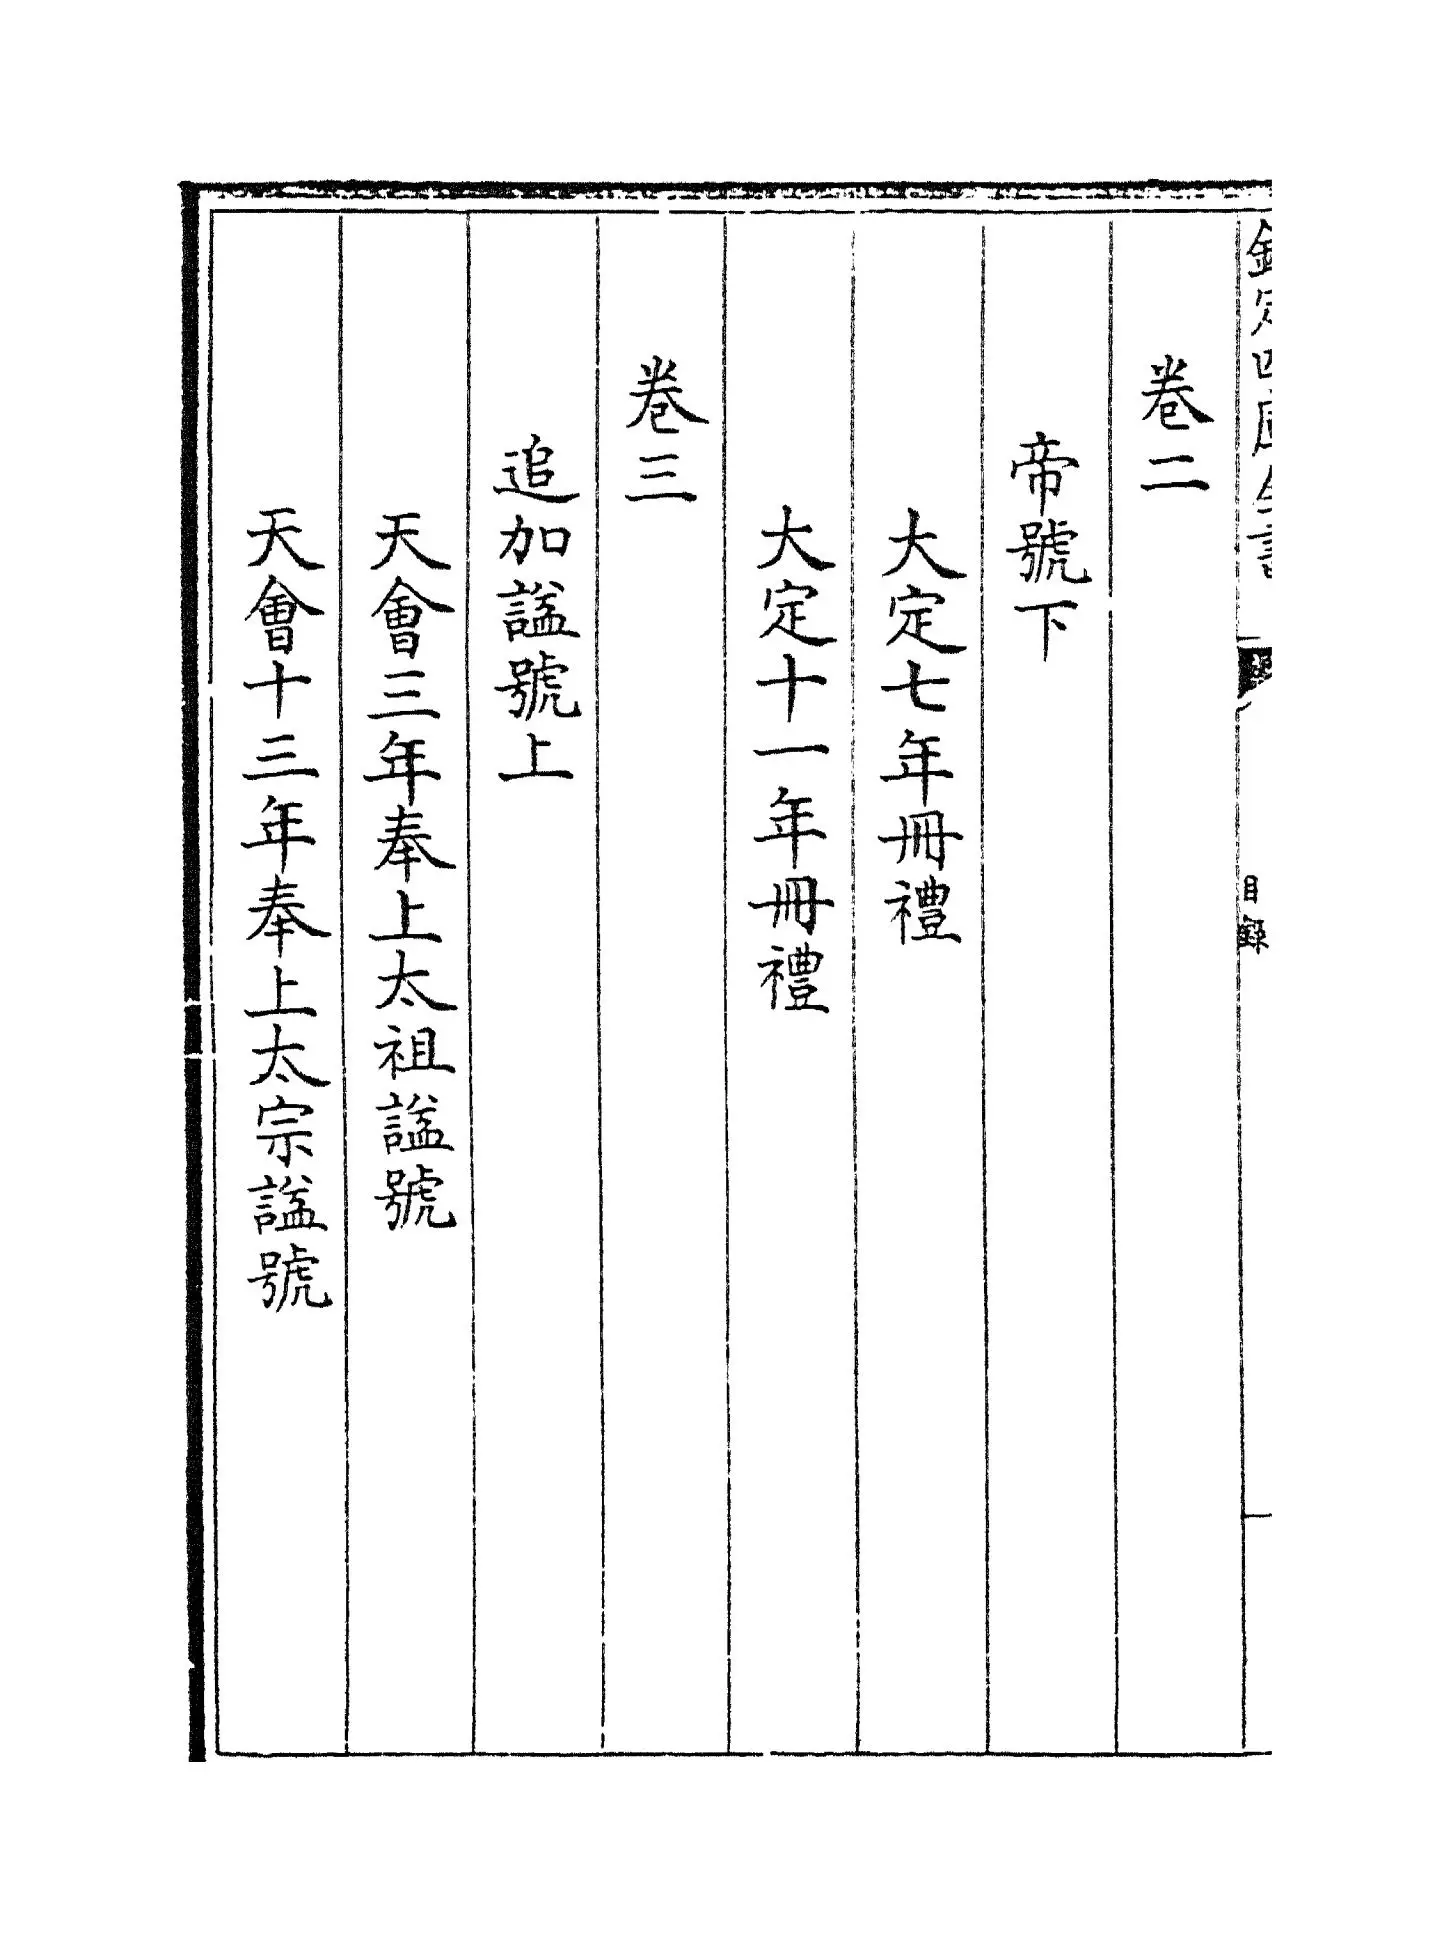 欽定四庫全書
目錄
卷二
帝號下
大定七年冊禮
大定十一年冊禮
卷三
追加謚號上
天會三年奉上太祖謚號
天會十三年奉上太宗謚號